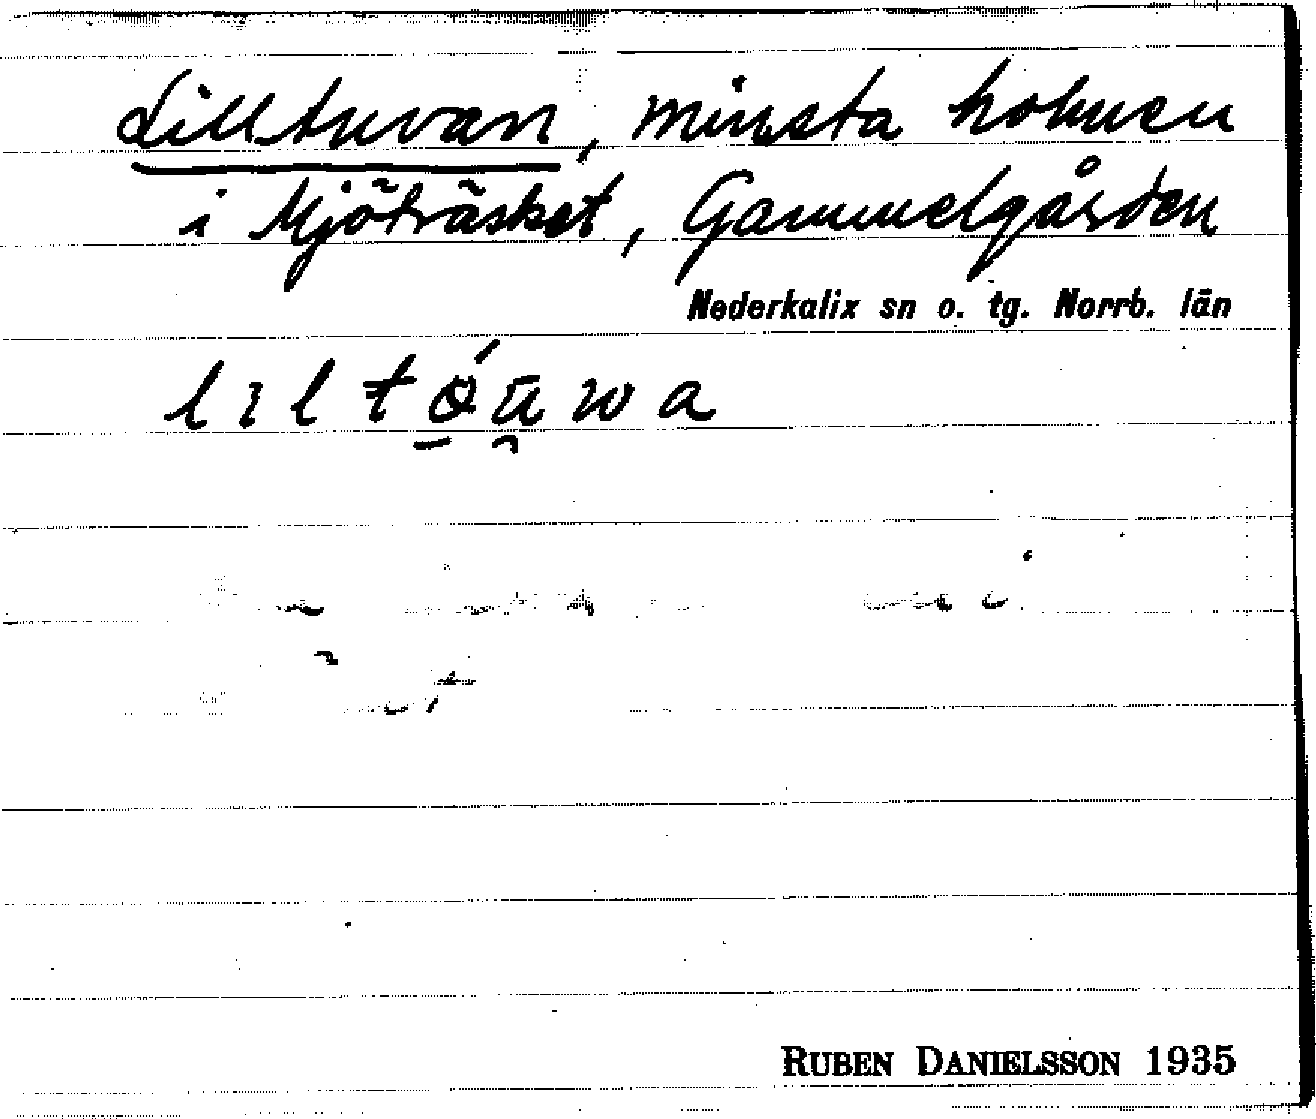 Lilltuvan, minsta holmen
i Mjöträsket, Gammelgården
Nederkalix sn o. tg. Norrb. län
lıltǫ́u̯wa
RUBEN DANIELSSON 1935